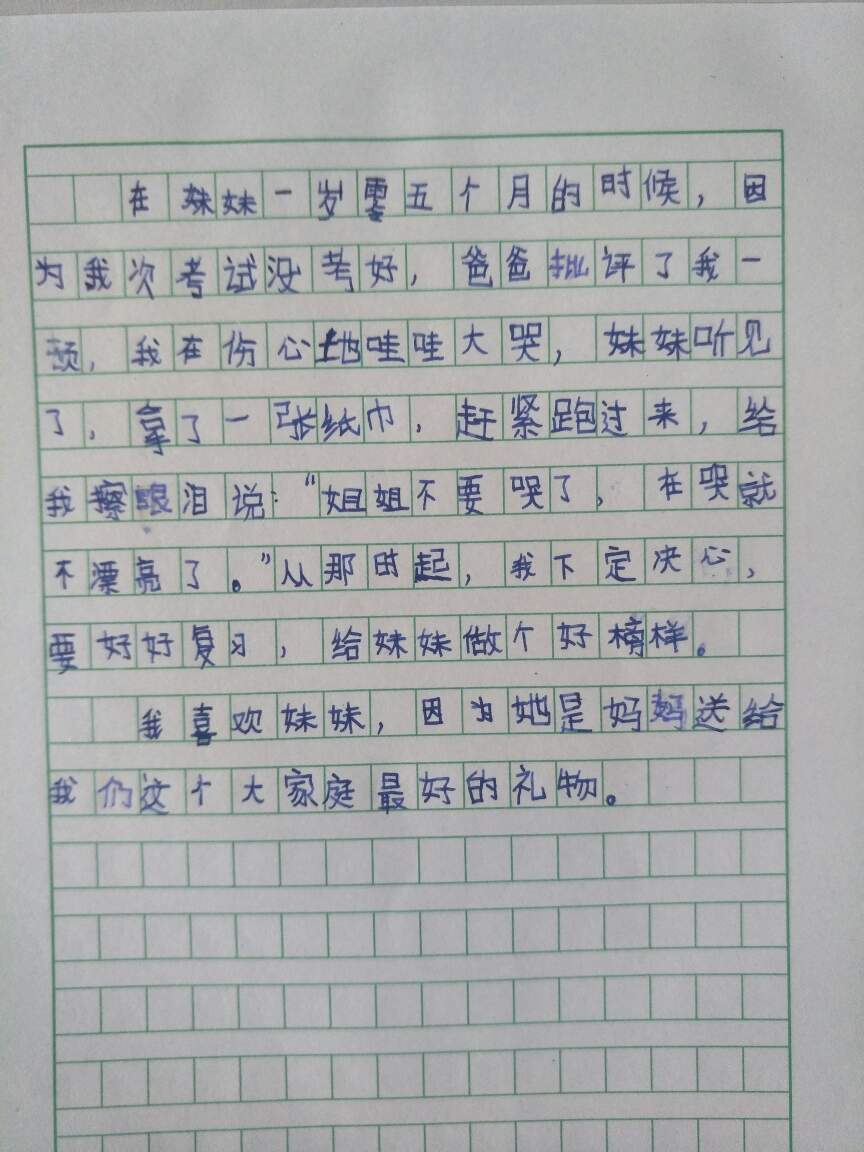 在妹妹一岁零五个月的时候，因
为我次考试没考好，爸爸批评了我一
顿，我在伤心地哇哇大哭，妹妹听见
了，拿了一张纸巾，赶紧跑过来，给
我擦眼泪说：“姐姐不要哭了，在哭就
不漂亮了。”从那时起，我下定决心，
要好好复习，给妹妹做个好榜样。
我喜欢妹妹，因为她是妈妈送给
我们这个大家庭最好的礼物。